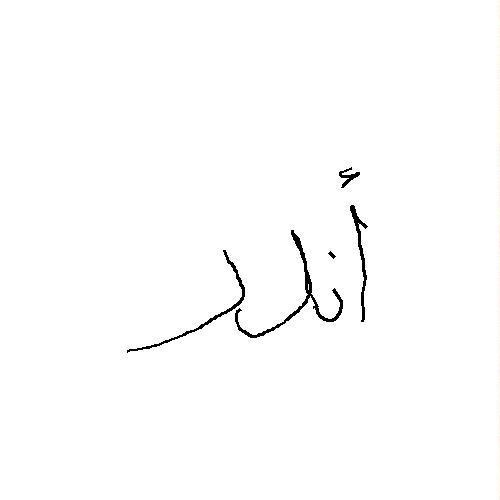 أندر